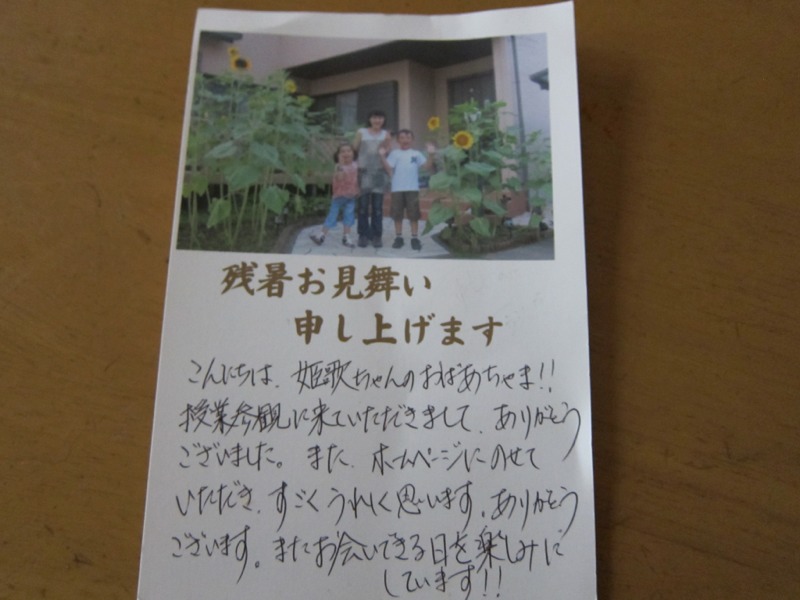 残暑お見舞い
申し上げます
こんにちは、姫歌ちゃんのおばあちゃま!!
授業参観に来ていただきまして、ありがとう
ございました。また、ホームページにのせて
いただき、すごくうれしく思います。ありがとう
ございます。またお会いできる日を楽しみに
しています!!